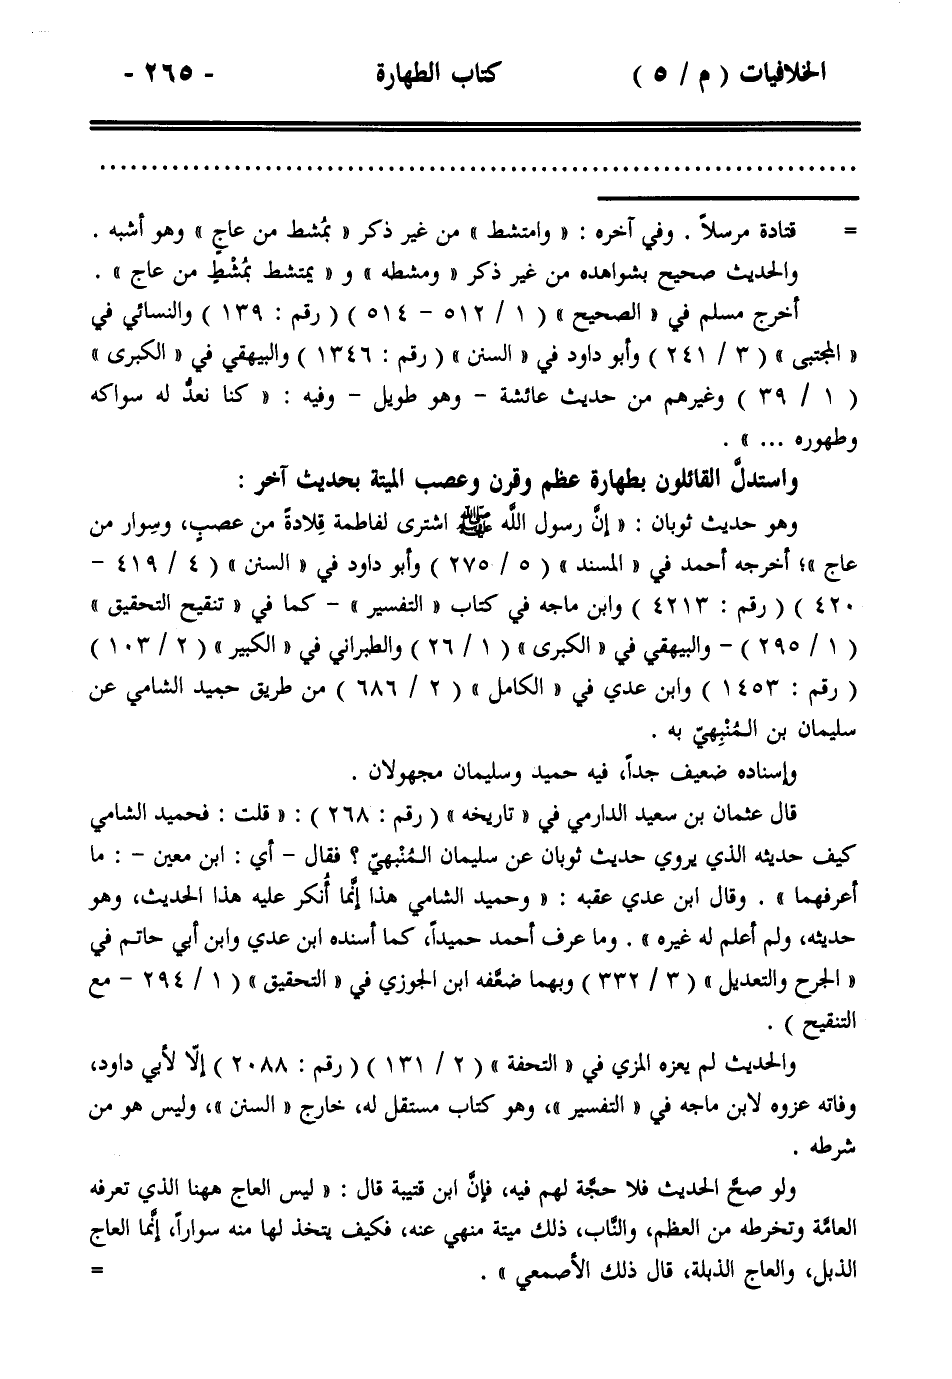 الخلافيات ( م / ٥ ) كتاب الطهارة - ٢٦٥ -
................................................................................
= قتادة مرسلاً . وفي آخره : « وامتشط » من غير ذكر « بمُشط من عاجٍ » وهو أشبه .
والحديث صحيح بشواهده من غير ذكر « ومشطه » و « يمتشط بمُشْطٍ من عاج » .
أخرج مسلم في « الصحيح » ( ١ / ٥١٢ – ٥١٤ ) ( رقم : ١٣٩ ) والنسائي في
« المجتبى » ( ٣ / ٢٤١ ) وأبو داود في « السنن » ( رقم : ١٣٤٦ ) والبيهقي في « الكبرى »
( ١ / ٣٩ ) وغيرهم من حديث عائشة – وهو طويل – وفيه : « كنا نعدُّ له سواكه
وطهوره ... » .
واستدلَّ القائلون بطهارة عظم وقرن وعصب الميتة بحديث آخر :
وهو حديث ثوبان : « إنَّ رسول اللَّه ﷺ اشترى لفاطمة قِلادةً من عصبٍ، وسِوار من
عاج »؛ أخرجه أحمد في « المسند » ( ٥ / ٢٧٥ ) وأبو داود في « السنن » ( ٤ / ٤١٩ –
٤٢٠ ) ( رقم : ٤٢١٣ ) وابن ماجه في كتاب « التفسير » – كما في « تنقيح التحقيق »
( ١ / ٢٩٥ ) – والبيهقي في « الكبرى » ( ١ / ٢٦ ) والطبراني في « الكبير » ( ٢ / ١٠٣ )
( رقم : ١٤٥٣ ) وابن عدي في « الكامل » ( ٢ / ٦٨٦ ) من طريق حميد الشامي عن
سليمان بن المُنْبِهيّ به .
وإسناده ضعيف جداً، فيه حميد وسليمان مجهولان .
قال عثمان بن سعيد الدارمي في « تاريخه » ( رقم : ٢٦٨ ) : « قلت : فحميد الشامي
كيف حديثه الذي يروي حديث ثوبان عن سليمان المُنْبهيّ ؟ فقال – أي : ابن معين – : ما
أعرفهما » . وقال ابن عدي عقبه : « وحميد الشامي هذا إنَّما أُنكر عليه هذا الحديث، وهو
حديثه، ولم أعلم له غيره » . وما عرف أحمد حميداً، كما أسنده ابن عدي وابن أبي حاتم في
« الجرح والتعديل » ( ٣ / ٣٣٢ ) وبهما ضعَّفه ابن الجوزي في « التحقيق » ( ١ / ٢٩٤ – مع
التنقيح ) .
والحديث لم يعزه المزي في « التحفة » ( ٢ / ١٣١ ) ( رقم : ٢٠٨٨ ) إلّا لأبي داود،
وفاته عزوه لابن ماجه في « التفسير »، وهو كتاب مستقل له، خارج « السنن »، وليس هو من
شرطه .
ولو صحَّ الحديث فلا حجَّة لهم فيه، فإنَّ ابن قتيبة قال : « ليس العاج ههنا الذي تعرفه
العامَّة وتخرطه من العظم، والنَّاب، ذلك ميتة منهي عنه، فكيف يتخذ لها منه سواراً، إنَّما العاج
الذبل، والعاج الذبلة، قال ذلك الأصمعي » . =